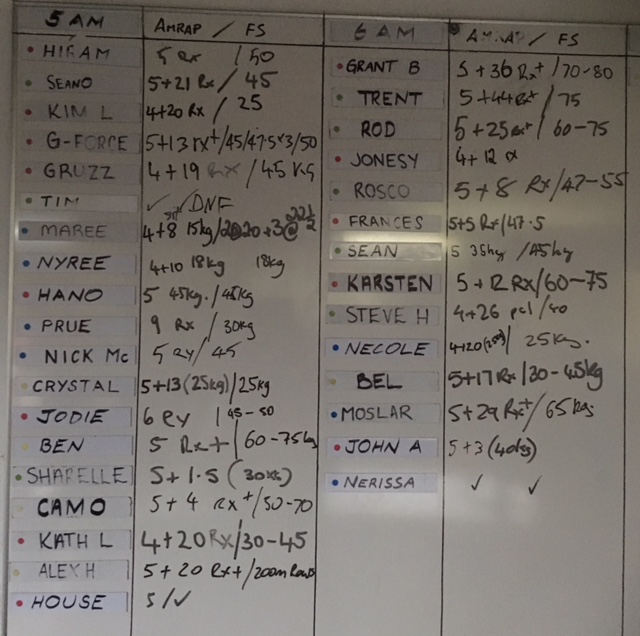 5 AM AMRAP / FS
HIRAM 5 Rx / 50
SEANO 5+21 Rx / 45
KIM L 4+20 Rx / 25
G-FORCE 5+13 rx+/45/47.5x3/50
GRUZZ 4+19 RX / 45 KG
TIM ✓ / DNF
MAREE 4+8 15kg/20+3@22½
NYREE 4+10 18kg 18kg
HANO 5 45kg. / 45kg
PRUE 9 Rx / 30kg
NICK Mc 5 Rx/ 45
CRYSTAL 5+13 (25kg)/25kg
JODIE 6 Rx / 45-50
BEN 5 Rx+ / 60-75kg
SHARELLE 5+1.5 (30kg)
CAMO 5+4 Rx+/50-70
KATH L 4+20 Rx/30-45
ALEX H 5+20 Rx+/200m Rows
HOUSE 5/✓
6 AM AMRAP / FS
GRANT B 5+36 Rx+/70-80
TRENT 5+44 Rx+/ 75
ROD 5+25 Rx+/ 60-75
JONESY 4+12
ROSCO 5+8 Rx/47-55
FRANCES 5+5 Rx/47.5
SEAN 5 35kg /45kg
KARSTEN 5+12 Rx/60-75
STEVE H 4+26 /40
NECOLE 4+20 / 25kg.
BEL 5+17 Rx/30-45kg
MOSLAR 5+29 Rx+/ 65kg
JOHN A 5+3
NERISSA ✓ ✓